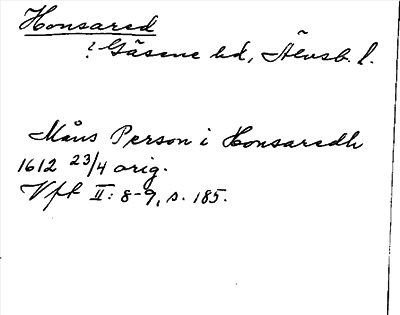 Honsared
? Gäsene hd, Älvsb. l.
Måns Person i Honsaredh
1612 23/4 orig.
Vfl II: 8-9, s. 185.